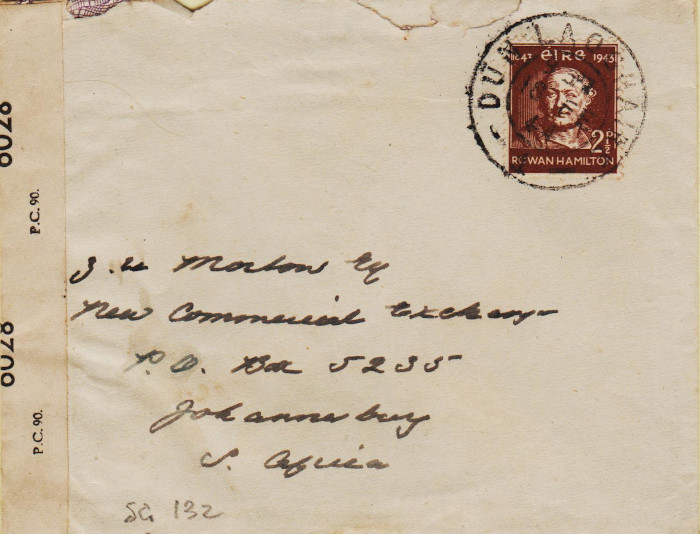 DUN LAOGHAIRE
1843 éire 1943
2½
ROWAN HAMILTON
P.C. 90.
P.C. 90.
Morton Esq
New Commercial Exchange
P.O. Box 5235
Johannesburg
S. Africa
SG 132